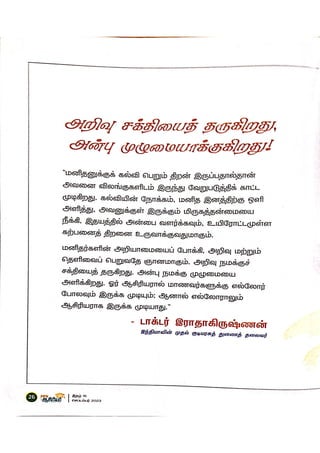 அறிவு சக்தியைத் தருகிறது,
அன்பு முழுமையாக்குகிறது!
"மனிதனுக்குக் கல்வி பெறும் திறன் இருப்பதால்தான்
அவனை விலங்குகளிடம் இருந்து வேறுபடுத்திக் காட்ட
முடிகிறது. கல்வியின் நோக்கம், மனித இனத்திற்கு ஒளி
அளித்து, அவனுக்குள் இருக்கும் மிருகத்தன்மையை
நீக்கி, இதயத்தில் அன்பை வளர்க்கவும், உயிரோட்டமுள்ள
கற்பனைத் திறனை உருவாக்குவதுமாகும்.
மனிதர்களின் அறியாமையைப் போக்கி, அறிவு மற்றும்
தெளிவைப் பெறுவதே ஞானமாகும். அறிவு நமக்குச்
சக்தியைத் தருகிறது. அன்பு நமக்கு முழுமையை
அளிக்கிறது. ஓர் ஆசிரியரால் மாணவர்களுக்கு எல்லோர்
போலவும் இருக்க முடியும்; ஆனால் எல்லோராலும்
ஆசிரியராக இருக்க முடியாது."
- டாக்டர் இராதாகிருஷ்ணன்
இந்தியாவின் முதல் குடியரசுத் துணைத் தலைவர்
26
செப்டம்பர் 2023